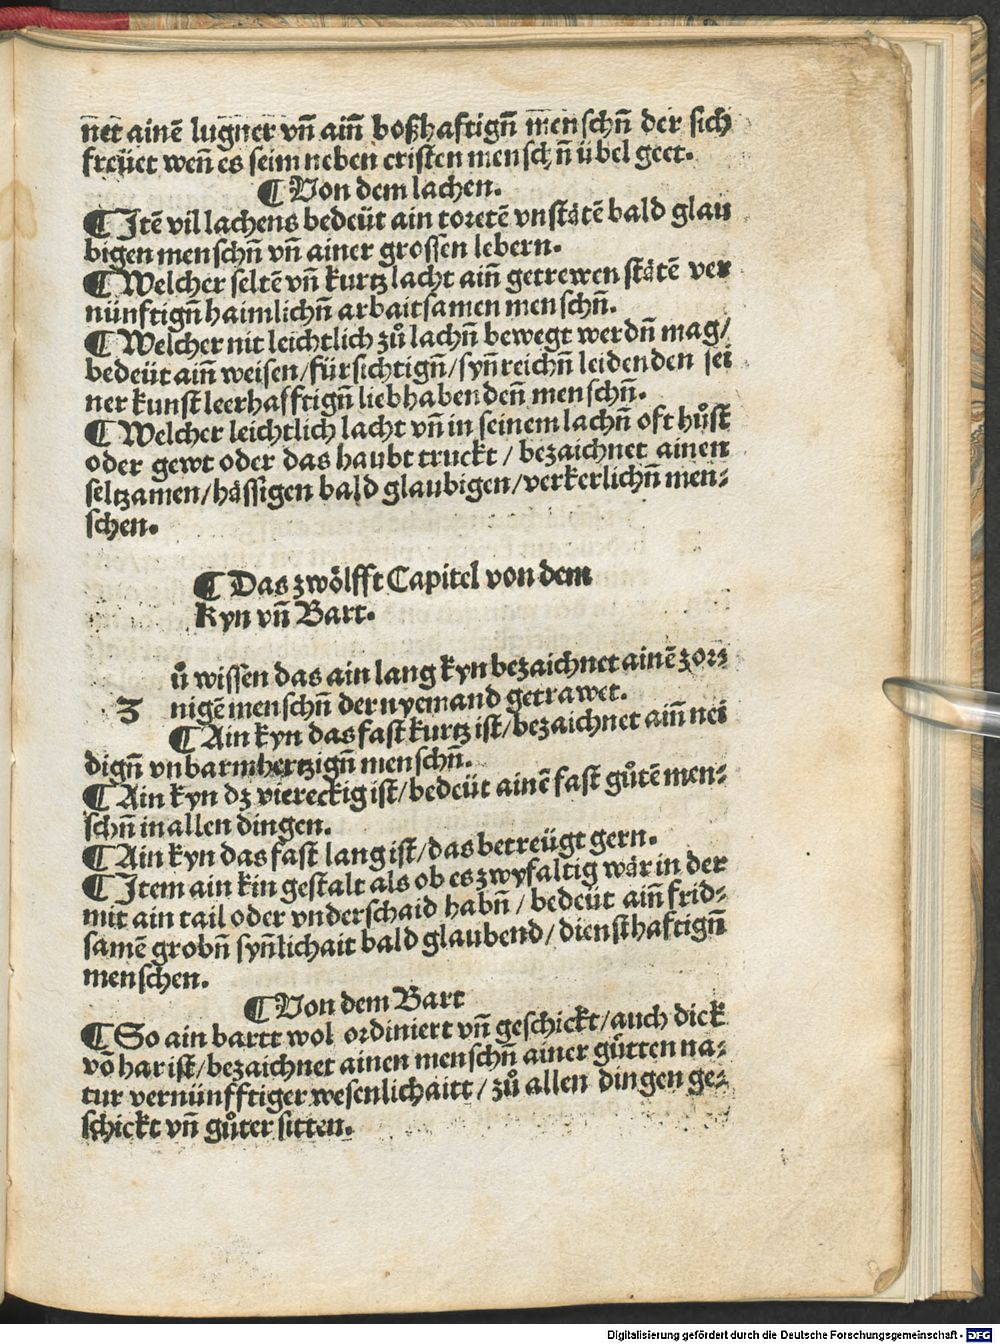 net ainē lugner vñ aiñ boßhaftigñ menschñ der sich
freüet weñ es seim neben cristen menschñ übel geet.
¶ Von dem lachen.
¶ Itē vil lachens bedeüt ain toretē vnstätē bald glau
bigen menschñ vñ ainer grossen lebern.
¶ Welcher seltē vñ kurtz lacht aiñ getrewen stätē ver
nünftigñ haimlichñ arbaitsamen menschñ.
¶ Welcher nit leichtlich zů lachñ bewegt werdñ mag/
bedeüt aiñ weisen/fürsichtigñ/syñreichñ leidenden sei
ner kunst leerhafftigñ liebhabendeñ menschñ.
¶ Welcher leichtlich lacht vñ in seinem lachñ oft hůst
oder gewt oder das haubt truckt / bezaichnet ainen
seltzamen/hässigen bald glaubigen/verkerlichñ men⸗
schen.
¶ Das zwölfft Capitel von dem
Kyn vñ Bart.
ů wissen das ain lang kyn bezaichnet ainē zor⸗
z nigē menschñ der nyemand getrawet.
¶ Ain kyn das fast kurtz ist/bezaichnet aiñ nei
digñ vnbarmhertzigñ menschñ.
¶ Ain kyn dz viereckig ist/bedeüt ainē fast gůtē men⸗
schñ in allen dingen.
¶ Ain kyn das fast lang ist/das betreügt gern.
¶ Item ain kin gestalt als ob es zwyfaltig wär in der
mit ain tail oder vnderschaid habñ / bedeüt aiñ frid⸗
samē grobñ syñlichait bald glaubend/diensthaftigñ
menschen.
¶ Von dem Bart
¶ So ain bartt wol ordiniert vñ geschickt/auch dick
vō har ist/bezaichnet ainen menschñ ainer gůtten na⸗
tur vernünfftiger wesenlichaitt/zů allen dingen ge⸗
schickt vñ gůter sitten.
Digitalisierung gefördert durch die Deutsche Forschungsgemeinschaft - DFG